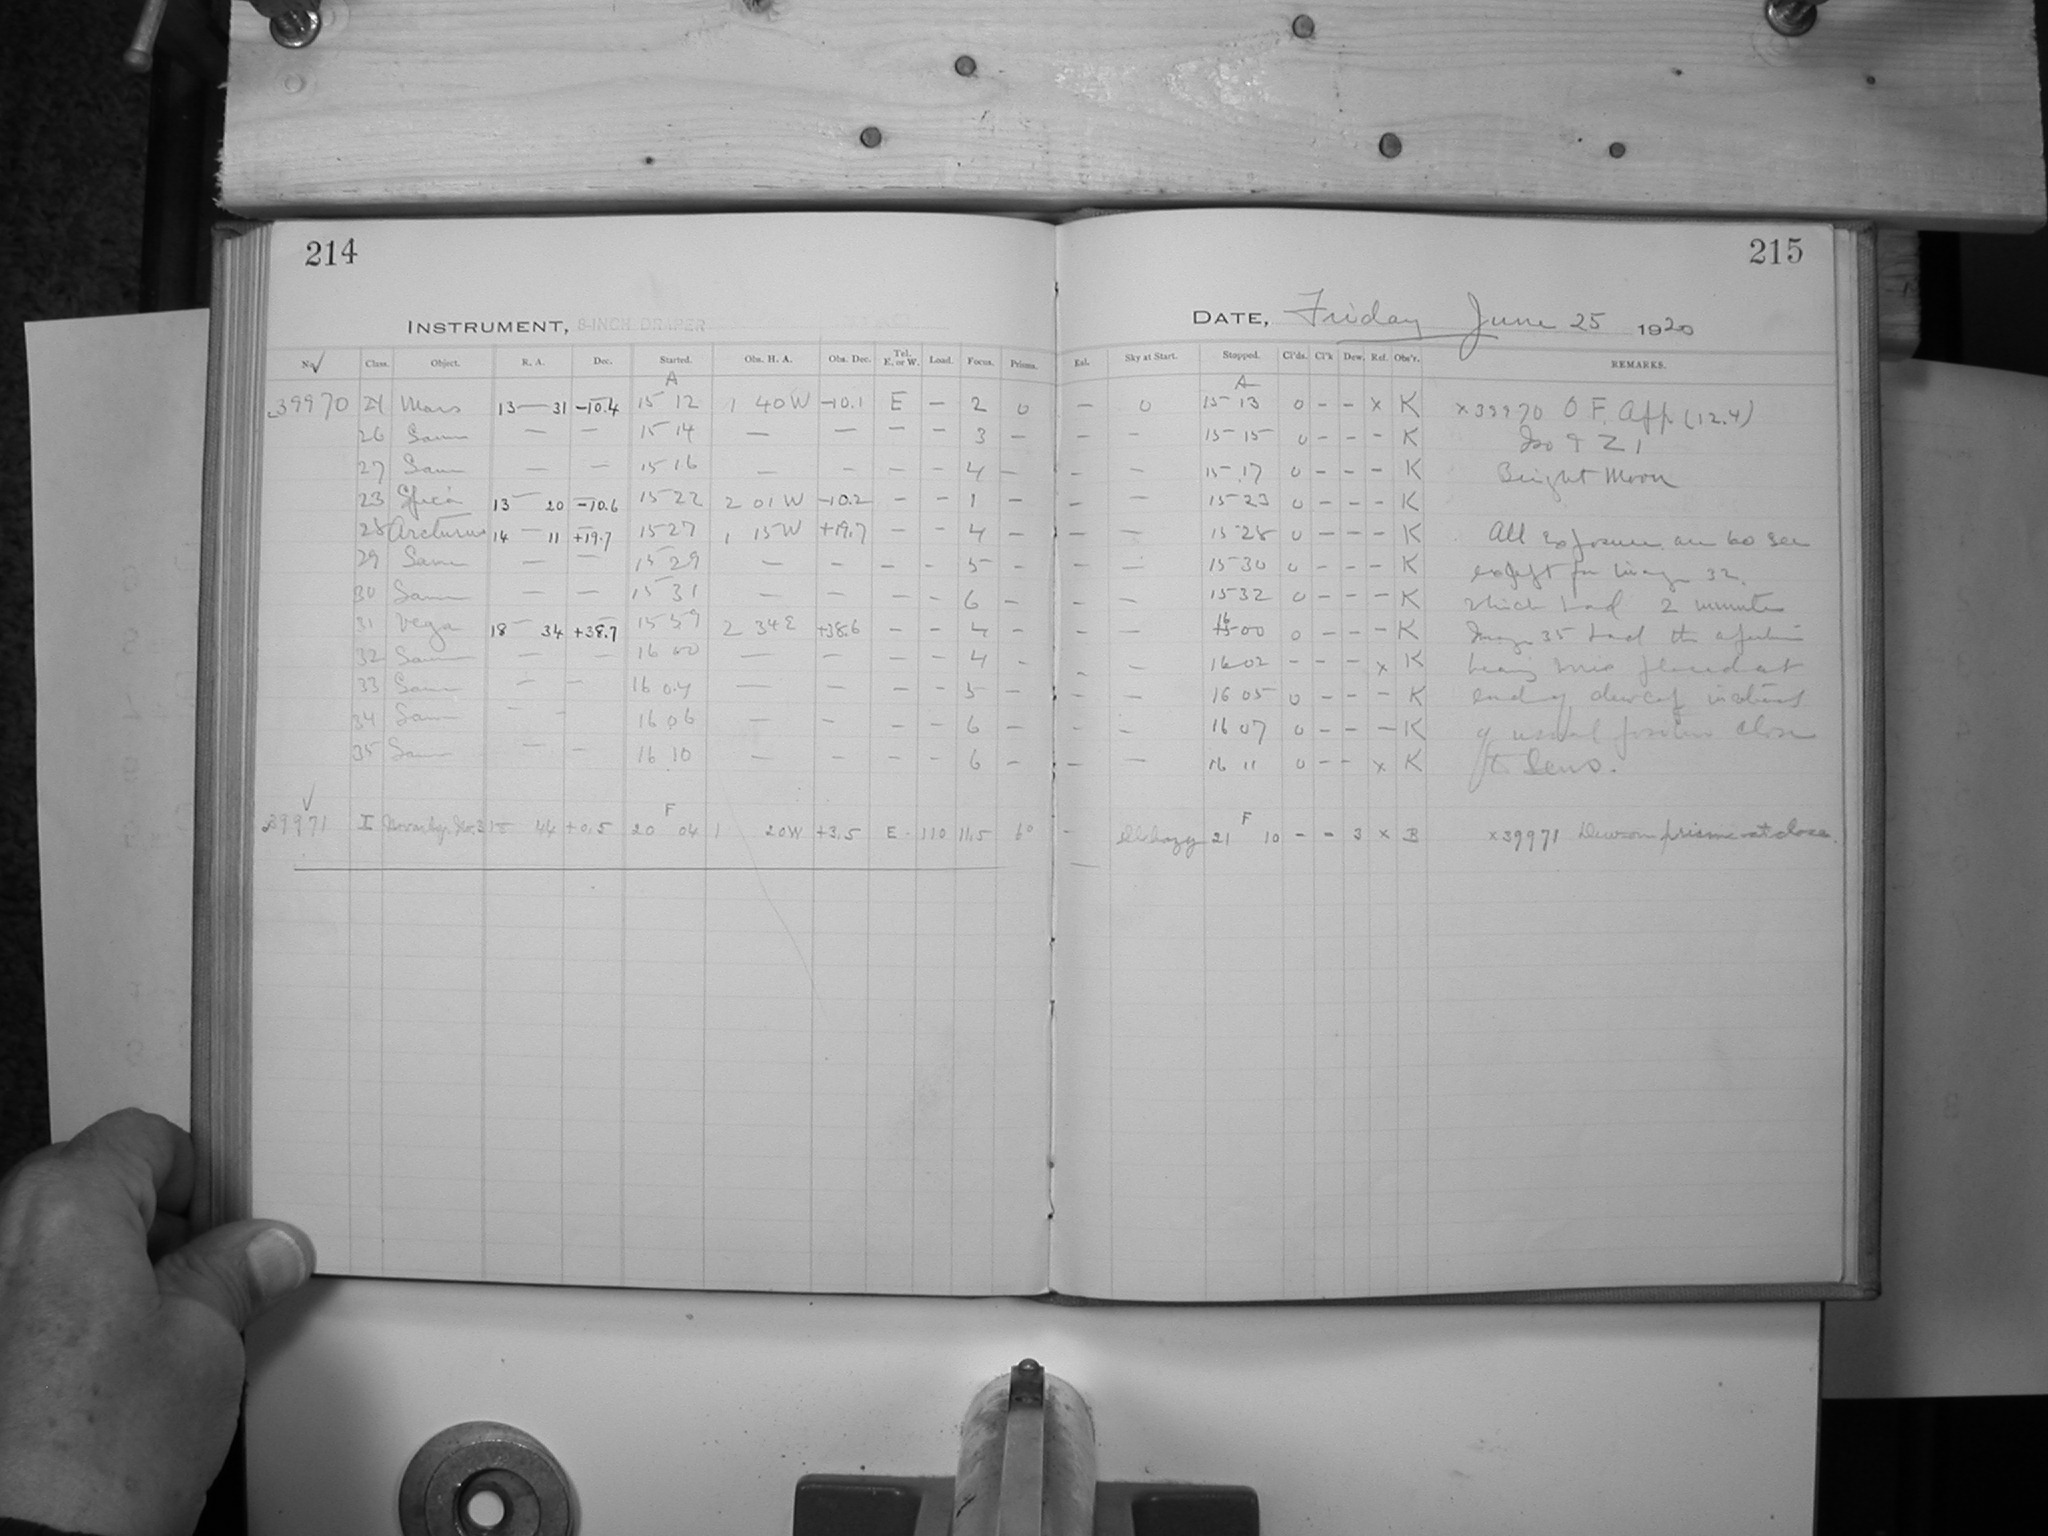 214
215
INSTRUMENT, 8-INCH DRAPER
DATE, Friday June 25 1920
No. Class. Object. R. A. Dec. Started. Obs. H. A. Obs. Dec. Tel. E. or W. Load. Focus. Prisms. Exl. Sky at Start. Stopped. Cl'ds. Cl'k Dew. Ref. Obs'r. REMARKS.
A A
39970 Mars 13 — 31 -10.4 15 12 1 40 W -10.1 E — 2 0 — 0 15 13 0 - - x K x39970 O F. App (12.4)
26 Same — — 15 14 — — — — 3 — — — 15 15 0 - - - K Iso + Z 1
27 Same — — 15 16 — — — — 4 — - - 15 17 0 - - - K Bright Moon
23 Spica 13 — 20 -10.6 15 22 2 01 W -10.2 — — 1 — — — 15 23 0 - - - K
28 Arcturus 14 — 11 +19.7 15 27 1 15 W +19.7 — — 4 — — — 15 28 0 - - - K All exposures are 60 sec
29 Same — — 15 29 — — — — 5 - - — 15 30 0 - - - K except for image 32.
30 Same — — 15 31 — — — — 6 — - — 15 32 0 - - - K which had 2 minutes
31 Vega 18 — 34 +38.7 15 59 2 34 E +38.6 — — 4 — - — 16 00 0 - - - K Image 35 had the aperture
32 Same — — 16 00 — — — — 4 - - — 16 02 - - - x K being placed at
33 Same — — 16 04 — — — — 5 — - — 16 05 0 - - - K end of dewcap instead
34 Same - - 16 06 — — — — 6 — - - 16 07 0 - - - K of usual position close
35 Same — — 16 10 — — — — 6 — — — 16 11 0 - - x K to lens.
F F
39971 I 18 44 +0.5 20 04 1 20 W +3.5 E 110 11.5 - 21 10 - - 3 x B x39971 Dew on prisms at close.